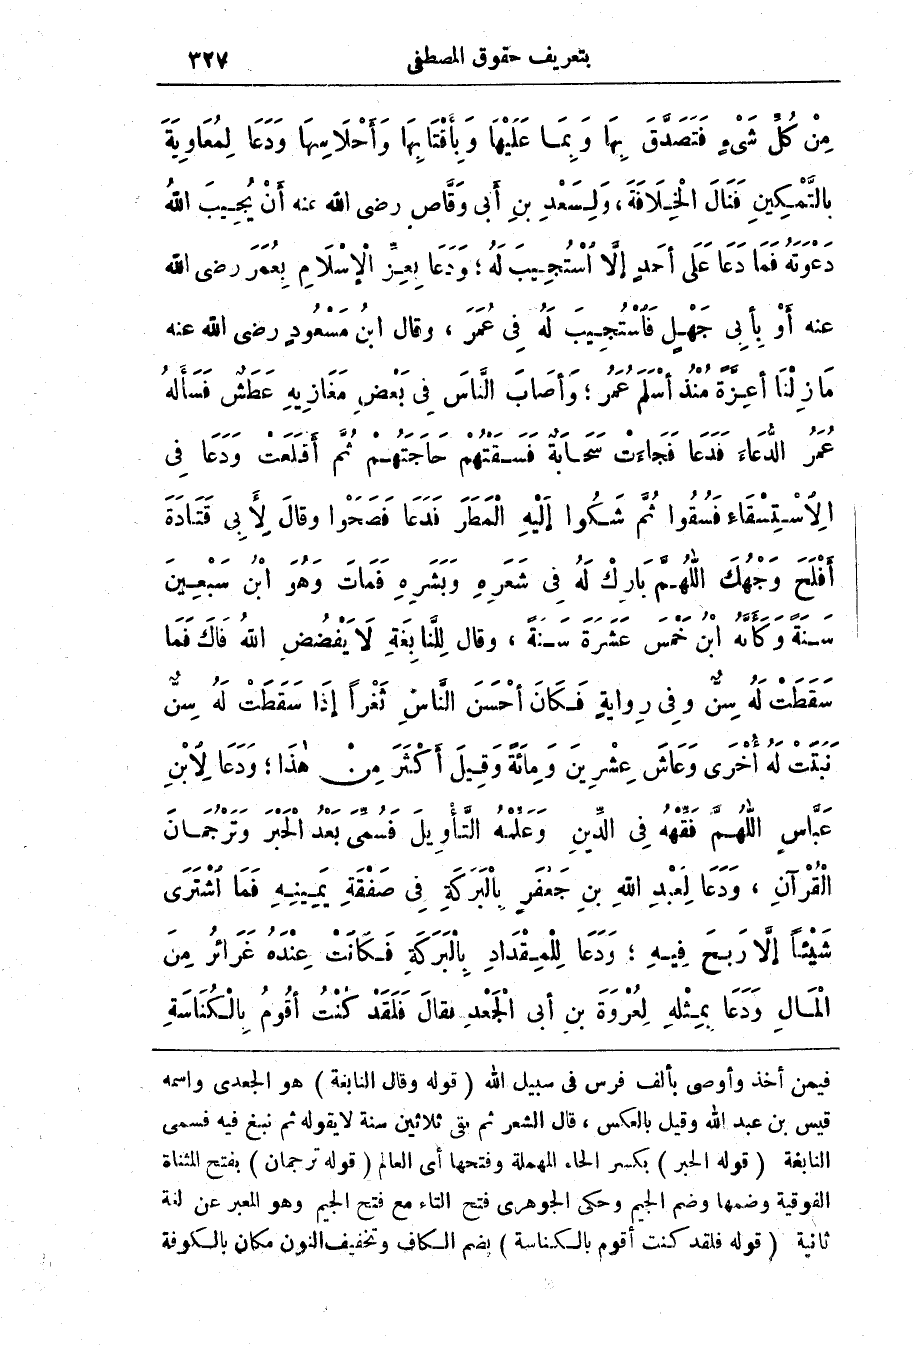 بتعريف حقوق المصطفى ٣٢٧
مِنْ كُلِّ شَىْءٍ فَتَصَدَّقَ بِهَا وَبِمَا عَلَيْهَا وَبِأَقْتَابِهَا وَأَحْلَاسِهَا وَدَعَا لِمُعَاوِيَةَ
بِالتَّمْكِينِ فَنَالَ الْخِلَافَةَ، وَلِسَعْدِ بنِ أَبى وَقَّاصٍ رضى الله عنه أَنْ يُجِيبَ اللهُ
دَعْوَتَهُ فَمَا دَعَا عَلَى أَحَدٍ إِلَّا اُسْتُجِيبَ لَهُ ؛ وَدَعَا بِعِزِّ الْإِسْلَامِ بِعُمَرَ رضى الله
عنه أَوْ بِأَبِى جَهْلٍ فَاُسْتُجِيبَ لَهُ فِى عُمَرَ ، وقال ابنُ مَسْعُودٍ رضى الله عنه
مَازِلْنَا أَعِزَّةً مُنْذُ أَسْلَمَ عُمَرُ ؛ وَأَصَابَ النَّاسَ فِى بَعْضِ مَغَازِيهِ عَطَشٌ فَسَأَلَهُ
عُمَرُ الدُّعَاءَ فَدَعَا فَجَاءَتْ سَحَابَةٌ فَسَقَتْهُمْ حَاجَتَهُمْ ثُمَّ أَقْلَعَتْ وَدَعَا فِى
الِاسْتِسْقَاءِ فَسُقُوا ثُمَّ شَكُوا إِلَيْهِ الْمَطَرَ فَدَعَا فَصَحَوْا وقالَ لِأَبِى قَتَادَةَ
أَفْلَحَ وَجْهُكَ اللَّهُمَّ بَارِكْ لَهُ فِى شَعَرِهِ وَبَشَرِهِ فَمَاتَ وَهُوَ ابْنُ سَبْعِينَ
سَنَةً وَكَأَنَّهُ ابْنُ خَمْسَ عَشْرَةَ سَنَةً ، وقال لِلنَّابِغَةِ لَا يَفْضُضِ اللهُ فَاكَ فَمَا
سَقَطَتْ لَهُ سِنٌّ وفى رِوايةٍ فَكَانَ أَحْسَنَ النَّاسِ ثَغْراً إِذَا سَقَطَتْ لَهُ سِنٌّ
نَبَتَتْ لَهُ أُخْرَى وَعَاشَ عِشْرِينَ وَمِائَةً وَقِيلَ أَكْثَرَ مِنْ هٰذَا ؛ وَدَعَا لِابْنِ
عَبَّاسٍ اللَّهُمَّ فَقِّهْهُ فِى الدِّينِ وَعَلِّمْهُ التَّأْوِيلَ فَسُمِّىَ بَعْدُ الْحَبْرَ وَتَرْجُمَانَ
الْقُرْآنِ ، وَدَعَا لِعَبْدِ اللهِ بنِ جَعْفَرٍ بِالْبَرَكَةِ فِى صَفْقَةِ يَمِينِهِ فَمَا اشْتَرَى
شَيْئاً إِلَّا رَبِحَ فِيهِ ؛ وَدَعَا لِلْمِقْدَادِ بِالْبَرَكَةِ فَكَانَتْ عِنْدَهُ غَرَائِرُ مِنَ
الْمَالِ وَدَعَا بِمِثْلِهِ لِعُرْوَةَ بنِ أبى الْجَعْدِ فقالَ فَلَقَدْ كُنْتُ أَقُومُ بِالْكُنَاسَةِ
فيمن أخذ وأوصى بألف فرس فى سبيل الله ( قوله وقال النابغة ) هو الجعدى واسمه
قيس بن عبد الله وقيل بالعكس ، قال الشعر ثم بقى ثلاثين سنة لايقوله ثم نبغ فيه فسمى
النابغة ( قوله الحبر ) بكسر الحاء المهملة وفتحها أى العالم ( قوله ترجمان ) بفتح المثناة
الفوقية وضمها وضم الجيم وحكى الجوهرى فتح التاء مع فتح الجيم وهو المعبر عن لغة
ثانية ( قوله فلقد كنت أقوم بالكناسة ) بضم الكاف وتخفيف النون مكان بالكوفة